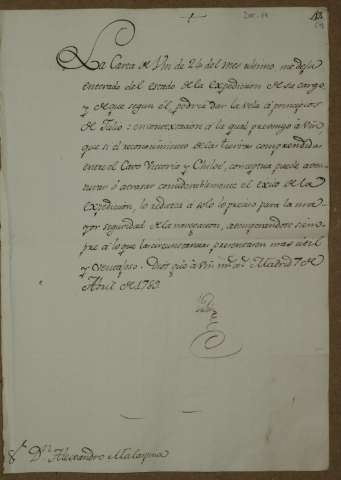 La Carta de Vm de 24 del mes ultimo me deja
enterado del estado de la expedicion de su cargo
y de que segun el, podrá dar la vela á principios
de Julio: en contextacion á la qual prevengo á Vm
que si el reconocimiento de las tierras comprendidas
entre el Cavo Victoria y Chiloé, conceptua puede aven
turar ó atrasar considerablemente el exito de la
Expedicion, lo reduzca á solo lo preciso para la ma
yor seguridad de la navegacion, acomodandose siem
pre á lo que las circunstancias presentaren mas util
y ventajoso. Dios gue á Vm ms as Madrid 7 de
Abril de 1789.
Dn Alexandro Malaspina